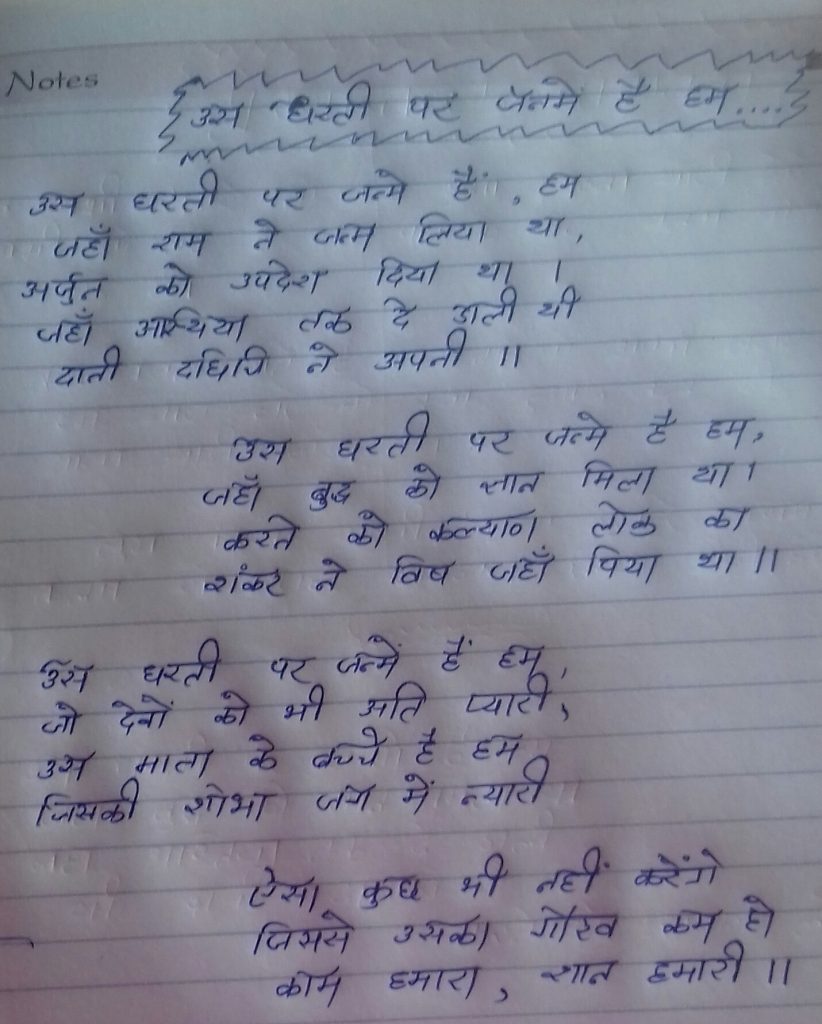 Notes
उस धरती पर जन्मे है हम....
उस धरती पर जन्मे हैं, हम
जहाँ राम ने जन्म लिया था,
अर्जुन को उपदेश दिया था ।
जहाँ अस्थिया तक दे डाली थी
दानी दधिचि ने अपनी ॥
उस धरती पर जन्मे है हम,
जहाँ बुद्ध को ज्ञान मिला था।
करने को कल्याण लोक का
शंकर ने विष जहाँ पिया था ॥
उस धरती पर जन्में हैं हम,
जो देवों को भी अति प्यारी,
उस माता के बच्चे है हम
जिसकी शोभा जग में न्यारी
ऐसा कुछ भी नहीं करेंगे
जिससे उसका गौरव कम हो
काम हमारा, शान हमारी ॥